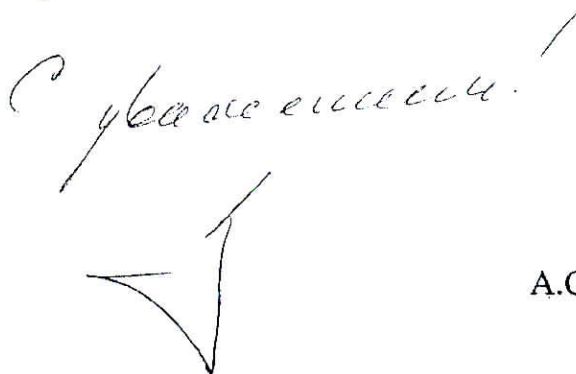 С уважением!
А.С